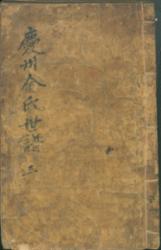 慶州金氏世譜 二